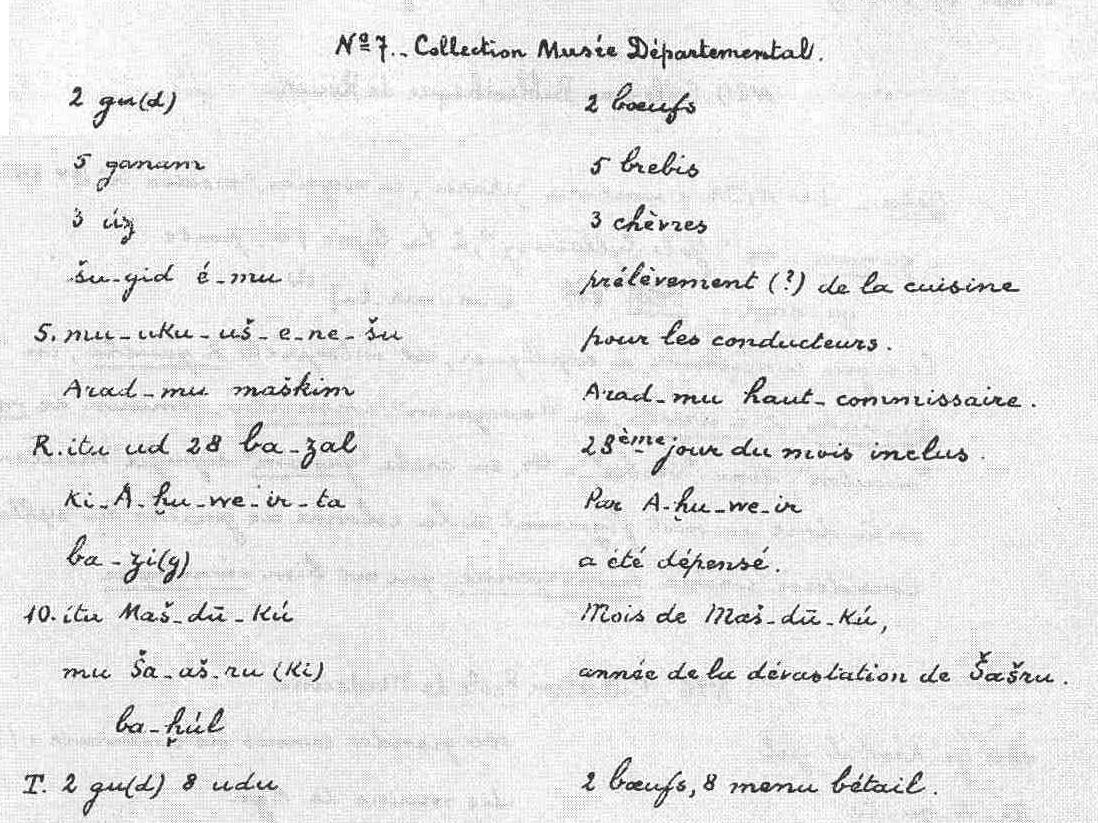 Nº 7. - Collection Musée Départemental.
2 gu(d) 2 bœufs
5 ganam 5 brebis
3 úz 3 chèvres
šu-gid é-mu prélèvement (?) de la cuisine
5. mu-uku-uš-e-ne-šu pour les conducteurs.
Arad-mu maškim Arad-mu haut-commissaire.
R. itu ud 28 ba-zal 28ème jour du mois inclus.
Ki-A-ḫu-we-ir-ta Par A-ḫu-we-ir
ba-zi(g) a été dépensé.
10. itu Maš-dū-kú Mois de Maš-dū-kú,
mu Ša-aš-ru (ki) année de la dévastation de Šašru.
ba-ḫúl
T. 2 gu(d) 8 udu 2 bœufs, 8 menu bétail.